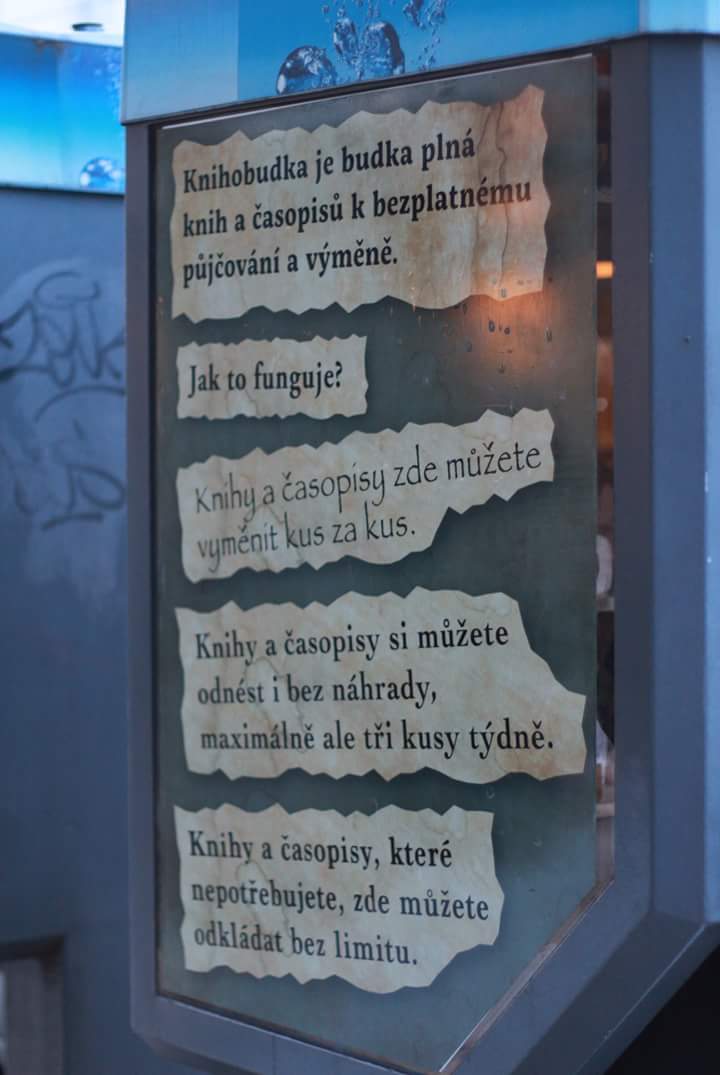 Knihobudka je budka plná
knih a časopisů k bezplatnému
půjčování a výměně.
Jak to funguje?
Knihy a časopisy zde můžete
vyměnit kus za kus.
Knihy a časopisy si můžete
odnést i bez náhrady,
maximálně ale tři kusy týdně.
Knihy a časopisy, které
nepotřebujete, zde můžete
odkládat bez limitu.